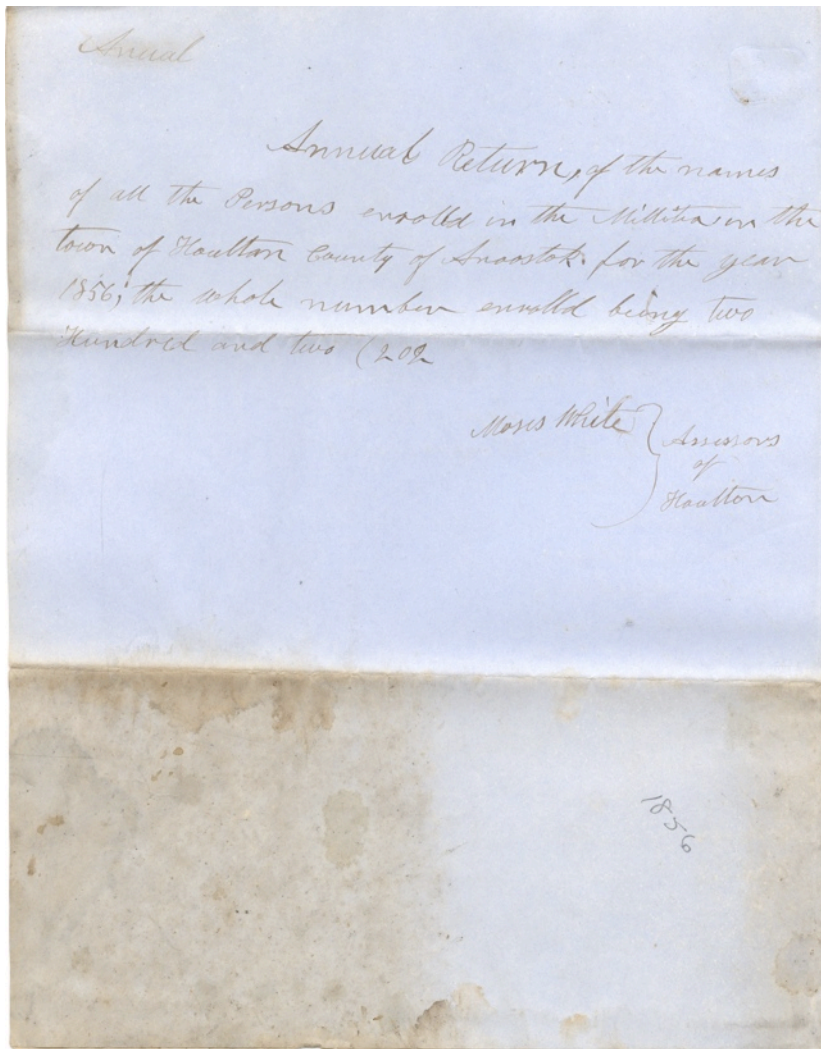 Anual
Annual Return, of the names
of all the Persons enrolld in the Millitia in the
town of Houlton County of Aroostok. for the year
1856; the whole number enrolld being two
Hundred and two (202
Moses White } Assessors
of
Houlton
1856